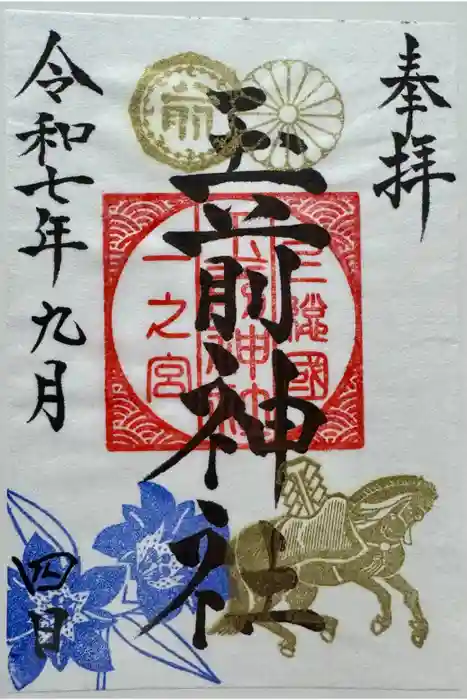 奉拝
玉前神社
上總國
玉前神社
一之宮
令和七年九月四日